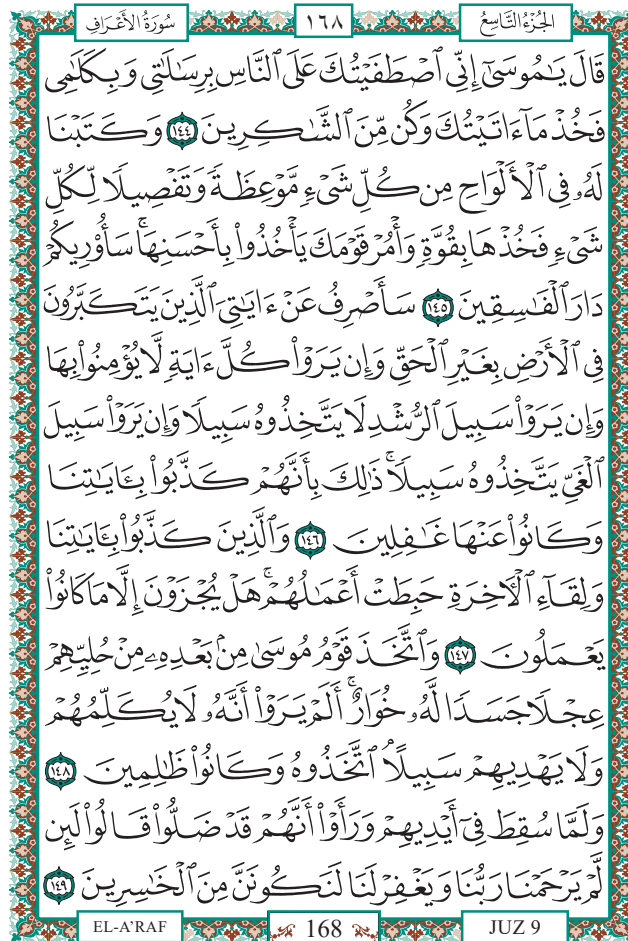 سُورَةُ الْأَعْرَافِ ١٦٨ الجُزْءُ التَّاسِعُ
قَالَ يَٰمُوسَىٰٓ إِنِّي ٱصْطَفَيْتُكَ عَلَى ٱلنَّاسِ بِرِسَٰلَٰتِي وَبِكَلَٰمِي
فَخُذْ مَآ ءَاتَيْتُكَ وَكُن مِّنَ ٱلشَّٰكِرِينَ ١٤٤ وَكَتَبْنَا
لَهُۥ فِي ٱلْأَلْوَاحِ مِن كُلِّ شَيْءٍ مَّوْعِظَةً وَتَفْصِيلًا لِّكُلِّ
شَيْءٍ فَخُذْهَا بِقُوَّةٍ وَأْمُرْ قَوْمَكَ يَأْخُذُوا۟ بِأَحْسَنِهَاۚ سَأُو۟رِيكُمْ
دَارَ ٱلْفَٰسِقِينَ ١٤٥ سَأَصْرِفُ عَنْ ءَايَٰتِيَ ٱلَّذِينَ يَتَكَبَّرُونَ
فِي ٱلْأَرْضِ بِغَيْرِ ٱلْحَقِّ وَإِن يَرَوْا۟ كُلَّ ءَايَةٍ لَّا يُؤْمِنُوا۟ بِهَا
وَإِن يَرَوْا۟ سَبِيلَ ٱلرُّشْدِ لَا يَتَّخِذُوهُ سَبِيلًا وَإِن يَرَوْا۟ سَبِيلَ
ٱلْغَيِّ يَتَّخِذُوهُ سَبِيلًاۚ ذَٰلِكَ بِأَنَّهُمْ كَذَّبُوا۟ بِـَٔايَٰتِنَا
وَكَانُوا۟ عَنْهَا غَٰفِلِينَ ١٤٦ وَٱلَّذِينَ كَذَّبُوا۟ بِـَٔايَٰتِنَا
وَلِقَآءِ ٱلْءَاخِرَةِ حَبِطَتْ أَعْمَٰلُهُمْۚ هَلْ يُجْزَوْنَ إِلَّا مَا كَانُوا۟
يَعْمَلُونَ ١٤٧ وَٱتَّخَذَ قَوْمُ مُوسَىٰ مِنۢ بَعْدِهِۦ مِنْ حُلِيِّهِمْ
عِجْلًا جَسَدًا لَّهُۥ خُوَارٌۚ أَلَمْ يَرَوْا۟ أَنَّهُۥ لَا يُكَلِّمُهُمْ
وَلَا يَهْدِيهِمْ سَبِيلًاۘ ٱتَّخَذُوهُ وَكَانُوا۟ ظَٰلِمِينَ ١٤٨
وَلَمَّا سُقِطَ فِيٓ أَيْدِيهِمْ وَرَأَوْا۟ أَنَّهُمْ قَدْ ضَلُّوا۟ قَالُوا۟ لَئِن
لَّمْ يَرْحَمْنَا رَبُّنَا وَيَغْفِرْ لَنَا لَنَكُونَنَّ مِنَ ٱلْخَٰسِرِينَ ١٤٩
EL-A'RAF 168 JUZ 9